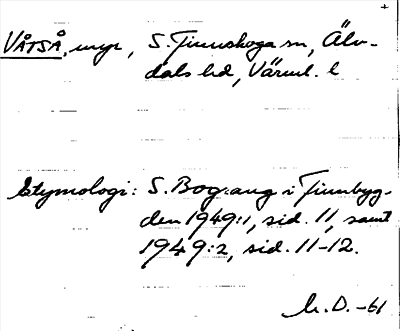 VÅTSÅ, myr, S. Finnskoga sn, Älv-
dals hd, Värml. l
Etymologi: S. Bogang i Finnbyg-
den 1949:1, sid. 11, samt
1949:2, sid. 11-12.
D. -61